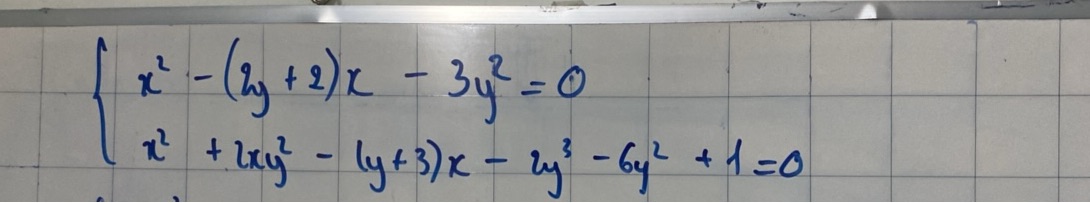 x² - (2y + 2)x - 3y² = 0
x² + 2xy² - (y+3)x - 2y³ - 6y² + 1 = 0